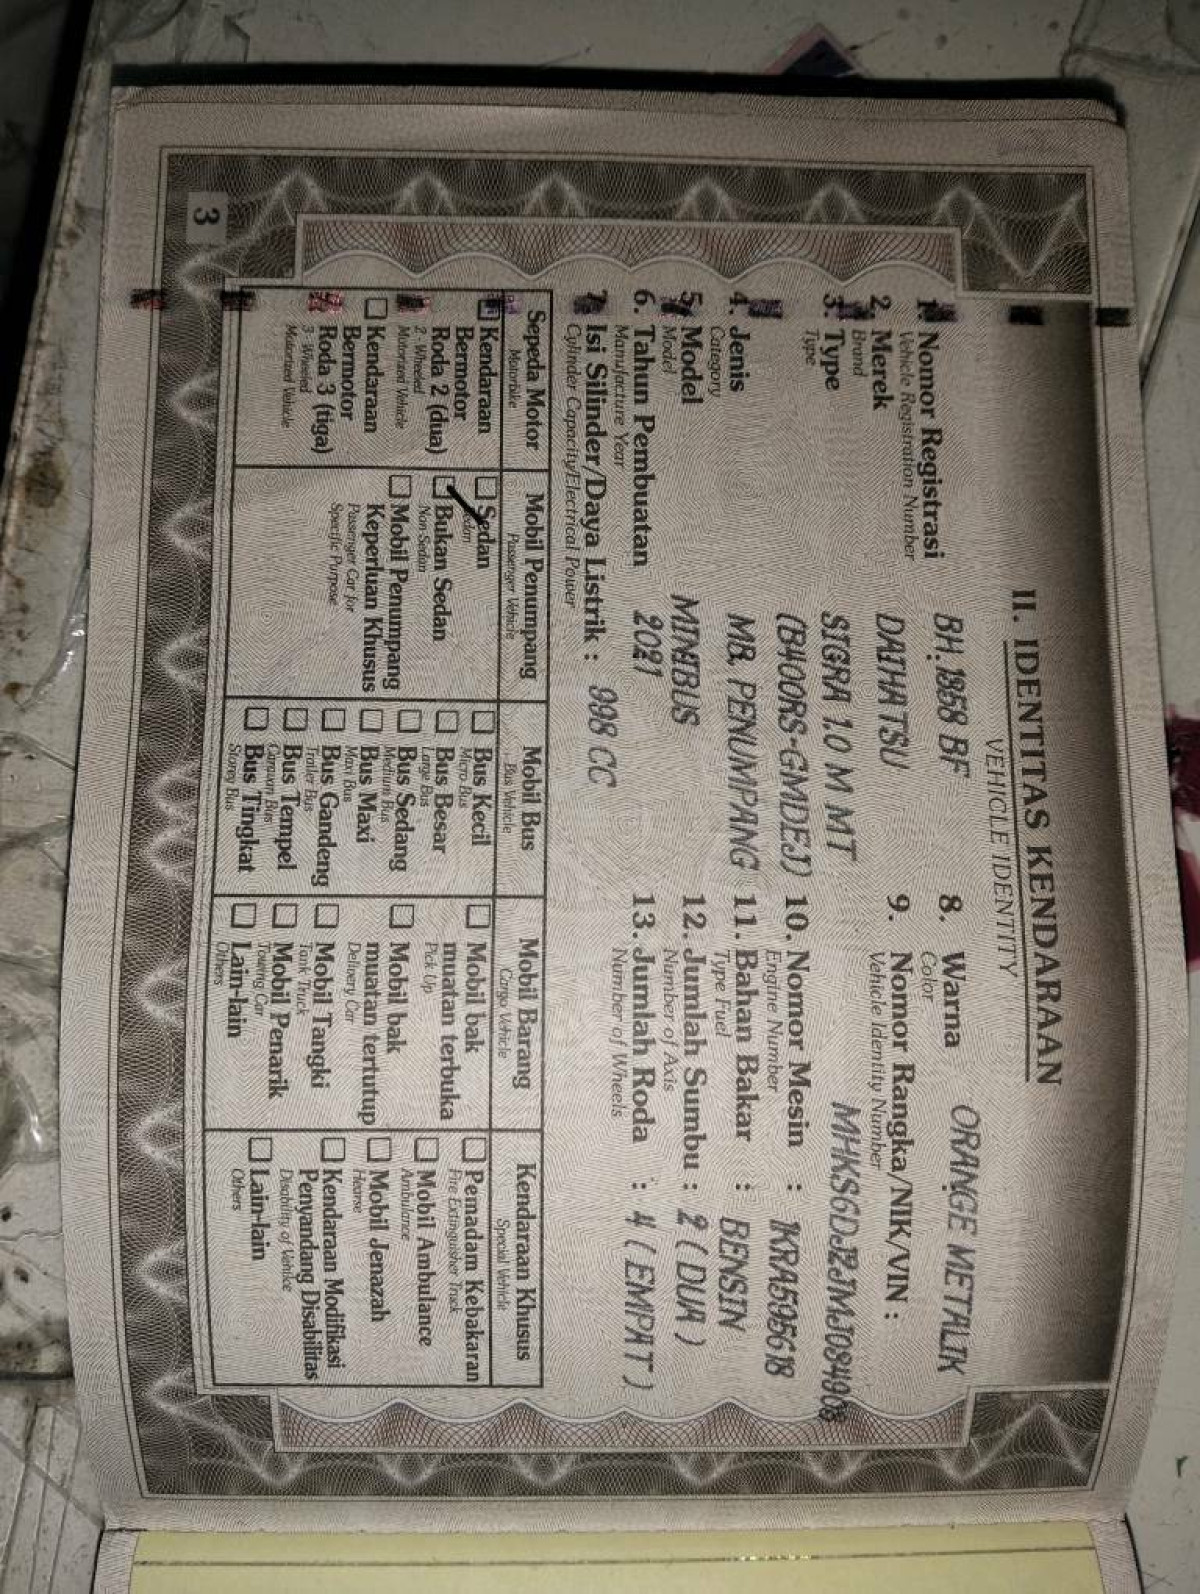 II. IDENTITAS KENDARAAN
VEHICLE IDENTITY
1. Nomor Registrasi BH 1958 BF
Vehicle Registration Number
2. Merek DAIHATSU
Brand
3. Type SIGRA 1.0 M MT
Type (B400RS-GMDEJ)
4. Jenis MB. PENUMPANG
Category
5. Model MINIBUS
Model
6. Tahun Pembuatan 2021
Manufacture Year
7. Isi Silinder/Daya Listrik : 998 CC
Cylinder Capacity/Electrical Power
8. Warna ORANGE METALIK
Color
9. Nomor Rangka/NIK/VIN :
Vehicle Identity Number
MHKS6DJ2JMJ084903
10. Nomor Mesin : 1KRA595618
Engine Number
11. Bahan Bakar : BENSIN
Type Fuel
12. Jumlah Sumbu : 2 ( DUA )
Number of Axis
13. Jumlah Roda : 4 ( EMPAT )
Number of Wheels
Sepeda Motor
Motorbike
Kendaraan
Bermotor
Roda 2 (dua)
2 Wheeled
Motorized Vehicle
Kendaraan
Bermotor
Roda 3 (tiga)
3 Wheeled
Motorized Vehicle
Mobil Penumpang
Passenger Vehicle
Sedan
Sedan
Bukan Sedan
Non Sedan
Mobil Penumpang
Keperluan Khusus
Passenger Car for
Specific Purpose
Mobil Bus
Bus Vehicle
Bus Kecil
Micro Bus
Bus Besar
Large Bus
Bus Sedang
Medium Bus
Bus Maxi
Maxi Bus
Bus Gandeng
Trailer Bus
Bus Tempel
Bus
Bus Tingkat
Storey Bus
Mobil Barang
Cargo Vehicle
Mobil bak
muatan terbuka
Pick Up
Mobil bak
muatan tertutup
Delivery Car
Mobil Tangki
Tank Truck
Mobil Penarik
Towing Car
Lain-lain
Others
Kendaraan Khusus
Special Vehicle
Pemadam Kebakaran
Fire Extinguisher Truck
Mobil Ambulance
Ambulance
Mobil Jenazah
Hearse
Kendaraan Modifikasi
Penyandang Disabilitas
Disability of Vehilce
Lain-lain
Others
3